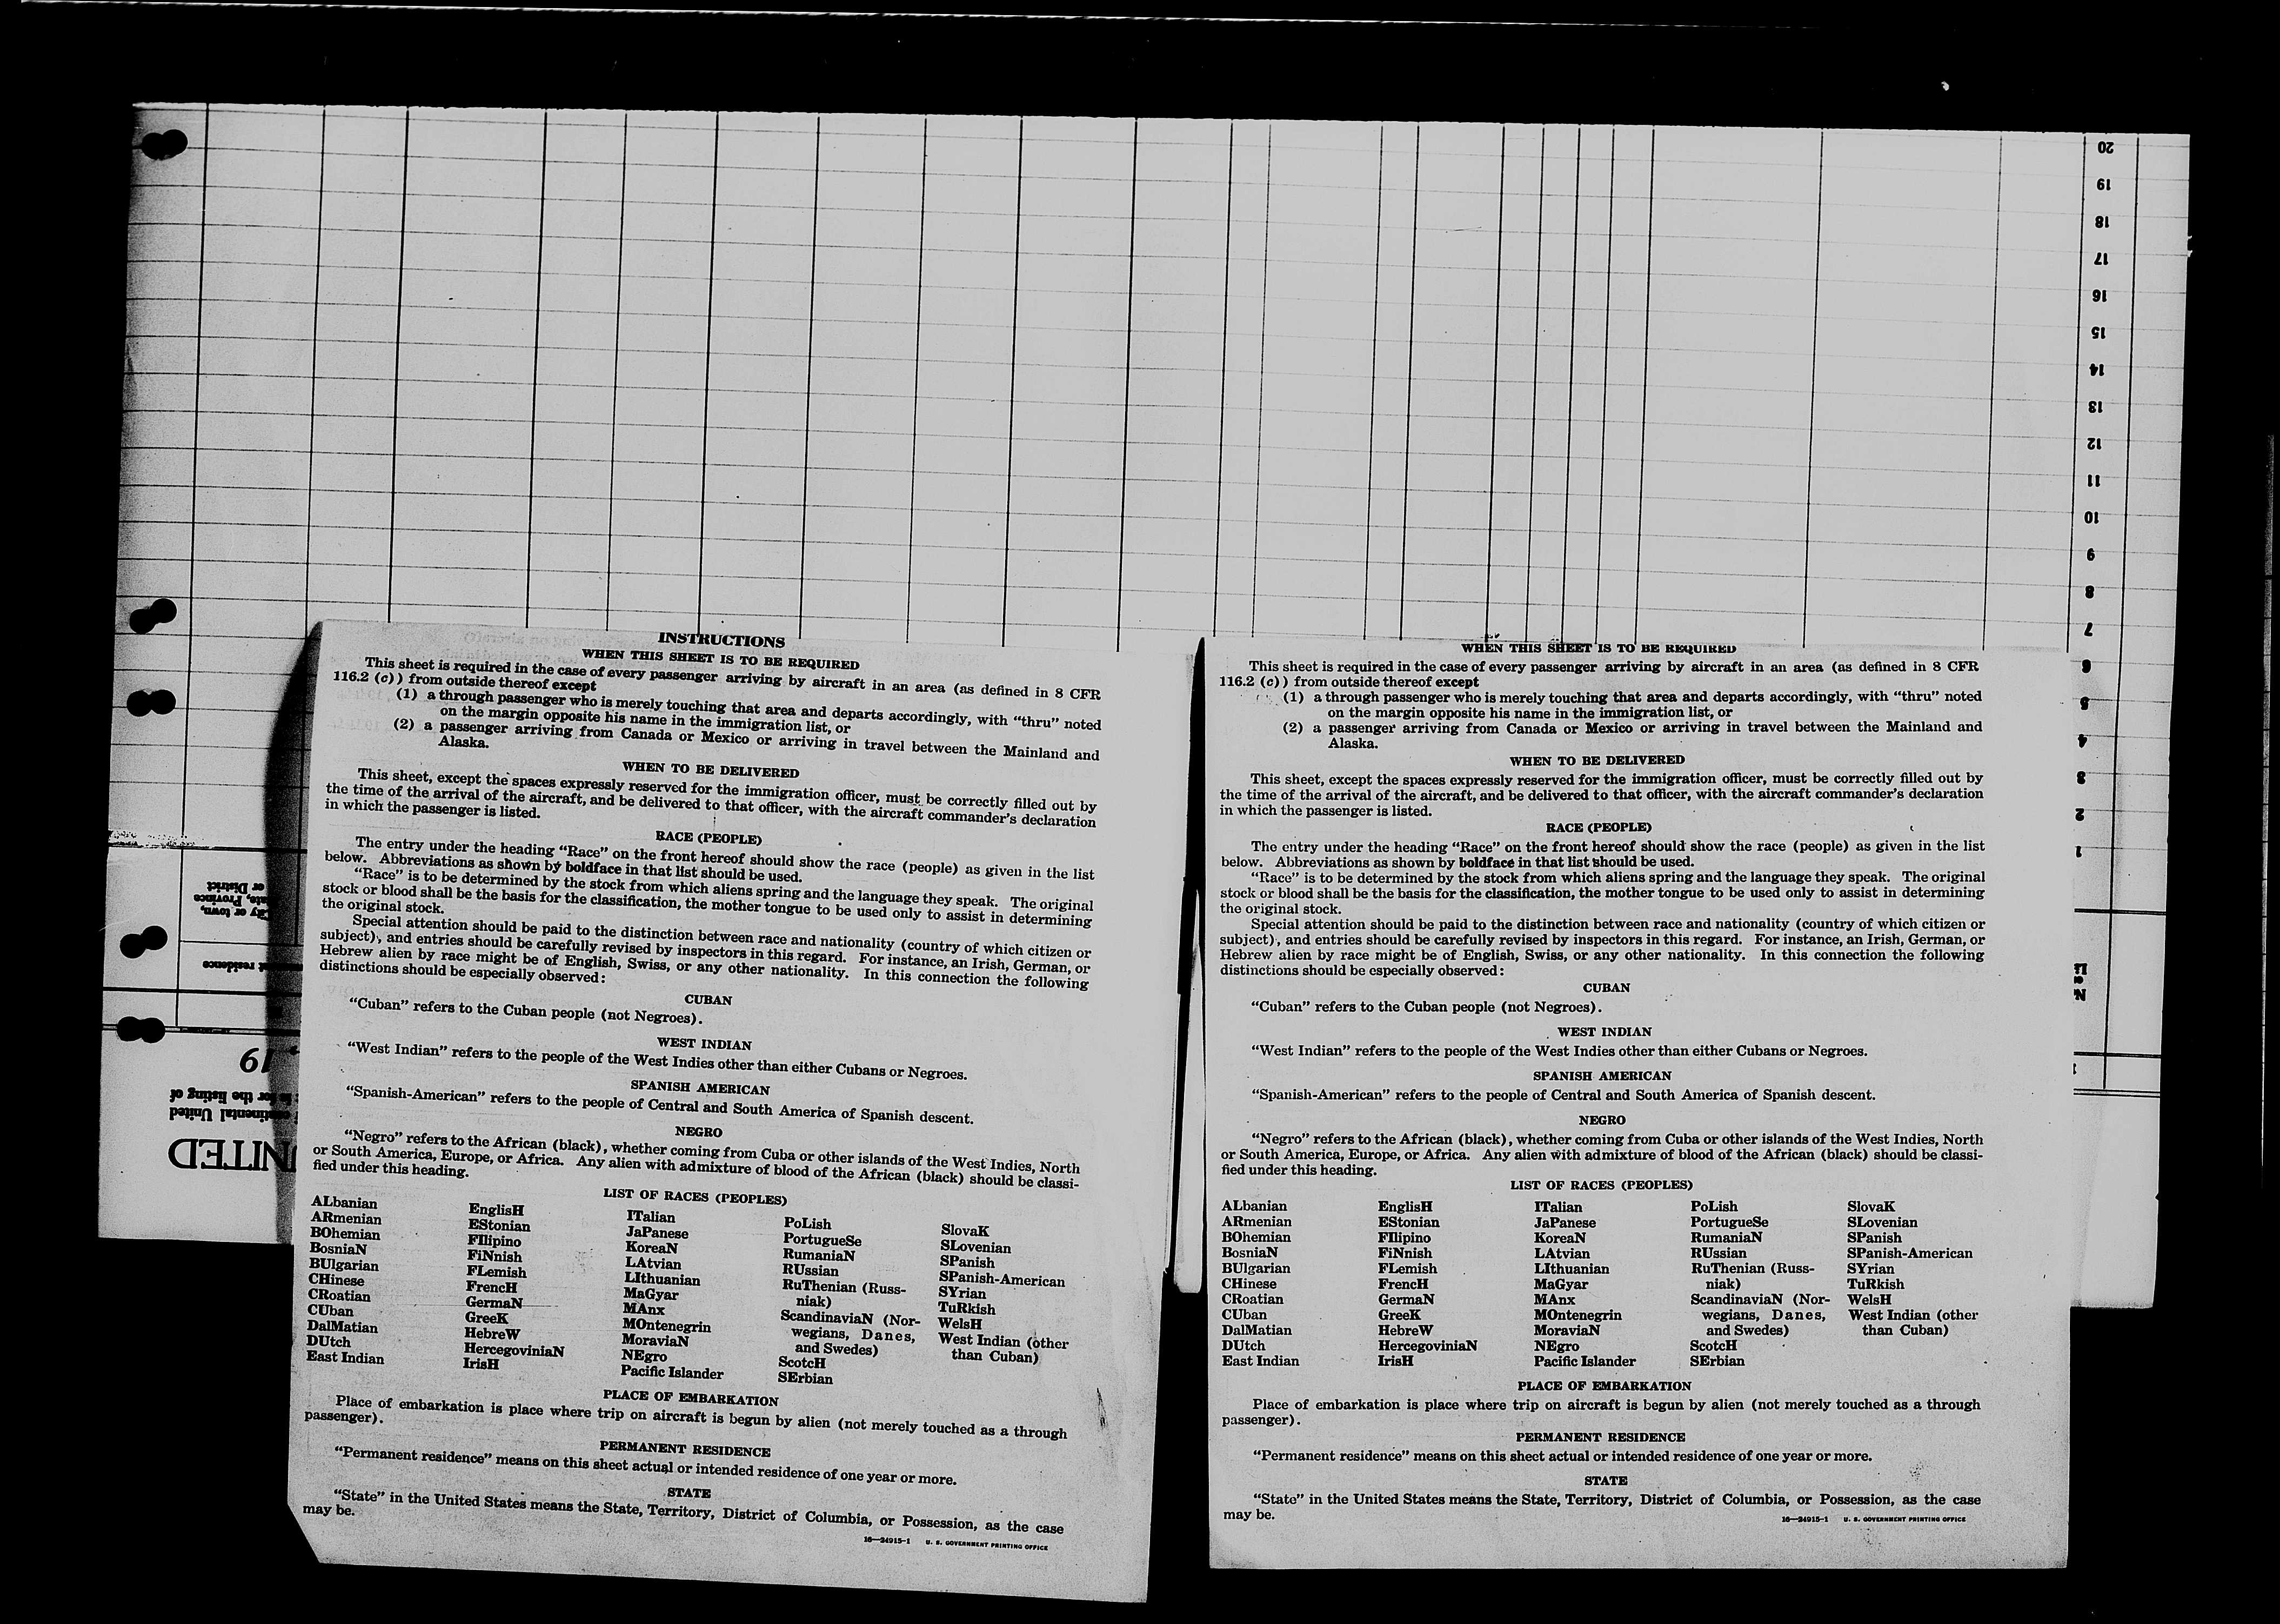 20
19
18
17
16
15
14
13
12
11
10
9
8
7
6
5
4
3
2
1
INSTRUCTIONS
WHEN THIS SHEET IS TO BE REQUIRED
This sheet is required in the case of every passenger arriving by aircraft in an area (as defined in 8 CFR
116.2 (c)) from outside thereof except
(1) a through passenger who is merely touching that area and departs accordingly, with “thru” noted
on the margin opposite his name in the immigration list, or
(2) a passenger arriving from Canada or Mexico or arriving in travel between the Mainland and
Alaska.
WHEN TO BE DELIVERED
This sheet, except the spaces expressly reserved for the immigration officer, must be correctly filled out by
the time of the arrival of the aircraft, and be delivered to that officer, with the aircraft commander’s declaration
in which the passenger is listed.
RACE (PEOPLE)
The entry under the heading “Race” on the front hereof should show the race (people) as given in the list
below. Abbreviations as shown by boldface in that list should be used.
“Race” is to be determined by the stock from which aliens spring and the language they speak. The original
stock or blood shall be the basis for the classification, the mother tongue to be used only to assist in determining
the original stock.
Special attention should be paid to the distinction between race and nationality (country of which citizen or
subject), and entries should be carefully revised by inspectors in this regard. For instance, an Irish, German, or
Hebrew alien by race might be of English, Swiss, or any other nationality. In this connection the following
distinctions should be especially observed:
CUBAN
“Cuban” refers to the Cuban people (not Negroes).
WEST INDIAN
“West Indian” refers to the people of the West Indies other than either Cubans or Negroes.
SPANISH AMERICAN
“Spanish-American” refers to the people of Central and South America of Spanish descent.
NEGRO
“Negro” refers to the African (black), whether coming from Cuba or other islands of the West Indies, North
or South America, Europe, or Africa. Any alien with admixture of blood of the African (black) should be classi-
fied under this heading.
LIST OF RACES (PEOPLES)
ALbanian
ARmenian
BOhemian
BosniaN
BUlgarian
CHinese
CRoatian
CUban
DalMatian
DUtch
East Indian
EnglisH
EStonian
FIlipino
FiNnish
FLemish
FrencH
GermaN
GreeK
HebreW
HercegoviniaN
IrisH
ITalian
JaPanese
KoreaN
LAtvian
LIthuanian
MaGyar
MAnx
MOntenegrin
MoraviaN
NEgro
Pacific Islander
PoLish
PortugueSe
RumaniaN
RUssian
RuThenian (Russ-
niak)
ScandinaviaN (Nor-
wegians, Danes,
and Swedes)
ScotcH
SErbian
SlovaK
SLovenian
SPanish
SPanish-American
SYrian
TuRkish
WelsH
West Indian (other
than Cuban)
PLACE OF EMBARKATION
Place of embarkation is place where trip on aircraft is begun by alien (not merely touched as a through
passenger).
PERMANENT RESIDENCE
“Permanent residence” means on this sheet actual or intended residence of one year or more.
STATE
“State” in the United States means the State, Territory, District of Columbia, or Possession, as the case
may be.
16—24915-1 U. S. GOVERNMENT PRINTING OFFICE
WHEN THIS SHEET IS TO BE REQUIRED
This sheet is required in the case of every passenger arriving by aircraft in an area (as defined in 8 CFR
116.2 (c)) from outside thereof except
(1) a through passenger who is merely touching that area and departs accordingly, with “thru” noted
on the margin opposite his name in the immigration list, or
(2) a passenger arriving from Canada or Mexico or arriving in travel between the Mainland and
Alaska.
WHEN TO BE DELIVERED
This sheet, except the spaces expressly reserved for the immigration officer, must be correctly filled out by
the time of the arrival of the aircraft, and be delivered to that officer, with the aircraft commander’s declaration
in which the passenger is listed.
RACE (PEOPLE)
The entry under the heading “Race” on the front hereof should show the race (people) as given in the list
below. Abbreviations as shown by boldface in that list should be used.
“Race” is to be determined by the stock from which aliens spring and the language they speak. The original
stock or blood shall be the basis for the classification, the mother tongue to be used only to assist in determining
the original stock.
Special attention should be paid to the distinction between race and nationality (country of which citizen or
subject), and entries should be carefully revised by inspectors in this regard. For instance, an Irish, German, or
Hebrew alien by race might be of English, Swiss, or any other nationality. In this connection the following
distinctions should be especially observed:
CUBAN
“Cuban” refers to the Cuban people (not Negroes).
WEST INDIAN
“West Indian” refers to the people of the West Indies other than either Cubans or Negroes.
SPANISH AMERICAN
“Spanish-American” refers to the people of Central and South America of Spanish descent.
NEGRO
“Negro” refers to the African (black), whether coming from Cuba or other islands of the West Indies, North
or South America, Europe, or Africa. Any alien with admixture of blood of the African (black) should be classi-
fied under this heading.
LIST OF RACES (PEOPLES)
ALbanian
ARmenian
BOhemian
BosniaN
BUlgarian
CHinese
CRoatian
CUban
DalMatian
DUtch
East Indian
EnglisH
EStonian
FIlipino
FiNnish
FLemish
FrencH
GermaN
GreeK
HebreW
HercegoviniaN
IrisH
ITalian
JaPanese
KoreaN
LAtvian
LIthuanian
MaGyar
MAnx
MOntenegrin
MoraviaN
NEgro
Pacific Islander
PoLish
PortugueSe
RumaniaN
RUssian
RuThenian (Russ-
niak)
ScandinaviaN (Nor-
wegians, Danes,
and Swedes)
ScotcH
SErbian
SlovaK
SLovenian
SPanish
SPanish-American
SYrian
TuRkish
WelsH
West Indian (other
than Cuban)
PLACE OF EMBARKATION
Place of embarkation is place where trip on aircraft is begun by alien (not merely touched as a through
passenger).
PERMANENT RESIDENCE
“Permanent residence” means on this sheet actual or intended residence of one year or more.
STATE
“State” in the United States means the State, Territory, District of Columbia, or Possession, as the case
may be.
16—24915-1 U. S. GOVERNMENT PRINTING OFFICE
United
for the listing of
, 19
residence
City or town,
Province
or District